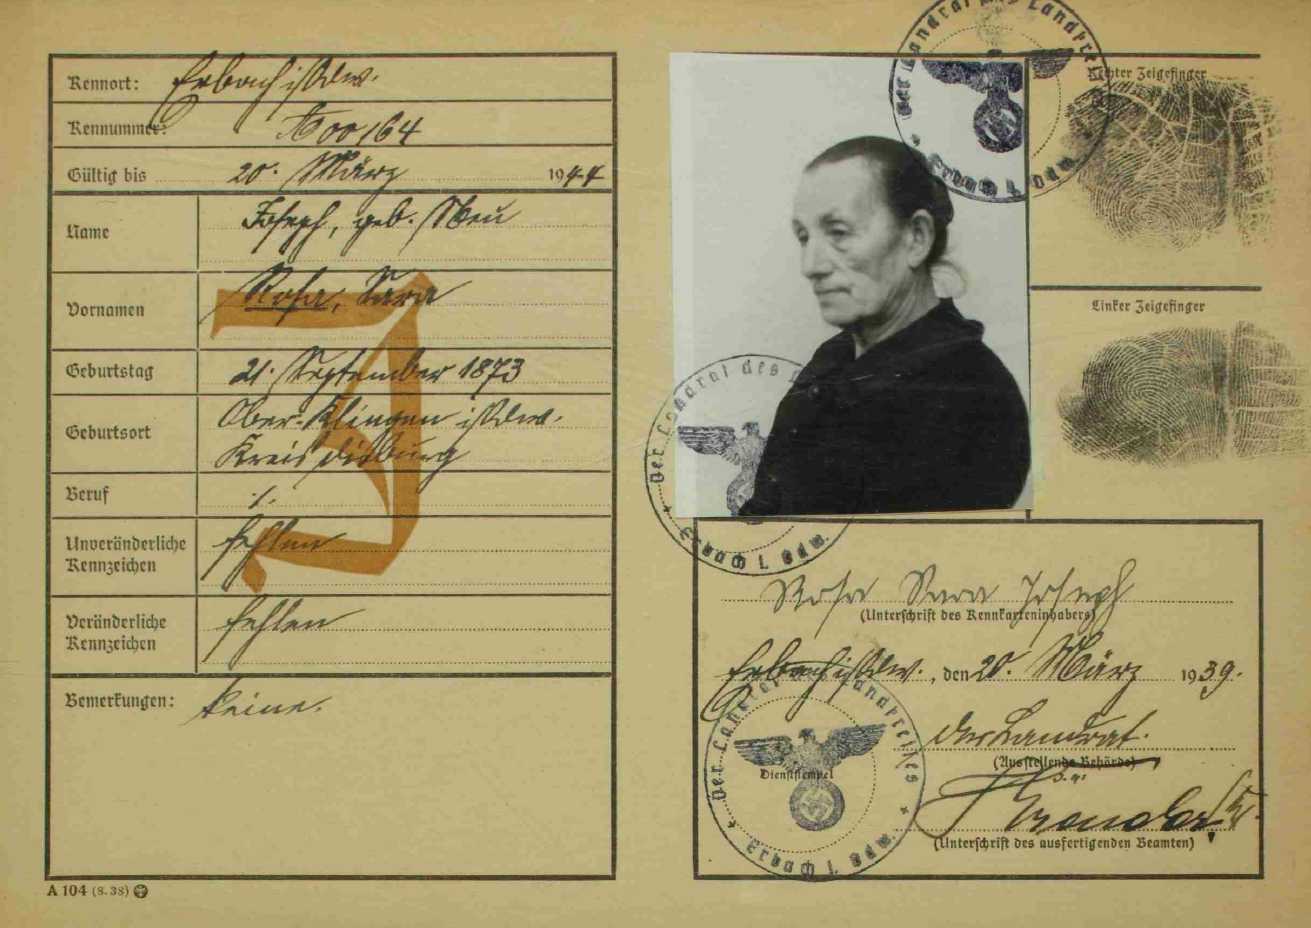 Kennort: Erbach i/Odw.
Kennummer: A 00164
Gültig bis 20. März 1944
Name Joseph, geb. Neu
Vornamen Rosa, Sara
J
Geburtstag 21. September 1873
Geburtsort Ober-Klingen i/Odw.
Kreis Dieburg
Beruf ./.
Unveränderliche Kennzeichen fehlen
Veränderliche Kennzeichen fehlen
Bemerkungen: keine.
A 104 (8.38)
Der Landrat des Landkreises
Erbach i. Odw.
Rechter Zeigefinger
Linker Zeigefinger
Der Landrat des
Erbach i. Odw.
Rosa Sara Joseph
(Unterschrift des Kennkarteninhabers)
Erbach i/Odw., den 20. März 1939.
Der Landrat.
(Ausstellende Behörde)
Der Landrat des Landkreises
Dienststempel
Erbach i. Odw.
(Unterschrift des ausfertigenden Beamten)